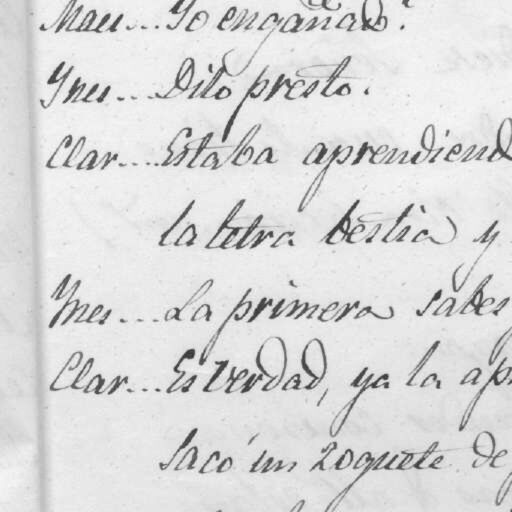 Mau... Yo engañado?
Ynes... Dilo presto.
Clar... Estaba aprendiend
la letra bestia y
Ynes... La primera sabes
Clar... Es verdad, ya la ap
sacó un zoquete de